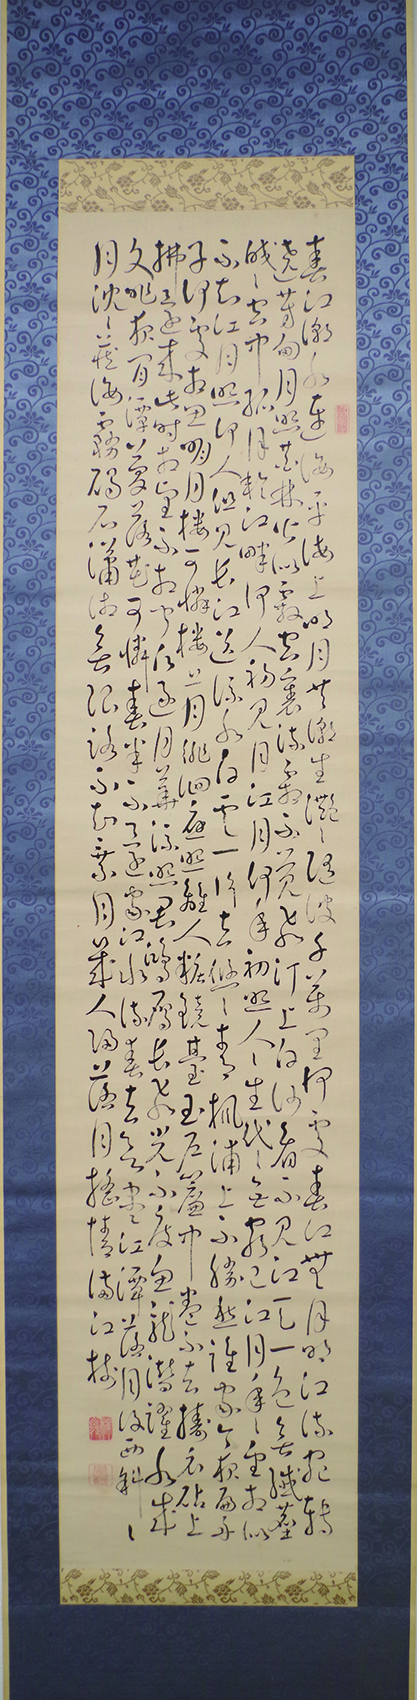 春江潮水連海平海上明月共潮生灔〻隨波千萬里何處春江無月明江流宛轉
遶芳甸月照花林皆似霰空裏流霜不覺飛汀上白沙看不見江天一色無纖塵
皎〻空中孤月輪江畔何人初見月江月何年初照人〻生代〻無窮已江月年〻望相似
不知江月照何人但見長江送流水白雲一片去悠〻青楓浦上不勝愁誰家今夜扁舟
子何處相思明月樓可憐樓上月徘徊應照離人粧鏡臺玉戶簾中卷不去擣衣砧上
拂還來此時相望不相聞願逐月華流照君鴻雁長飛光不度魚龍潛躍水成
文昨夜閑潭夢落花可憐春半不還家江水流春去欲盡江潭落月復西斜〻
月沈〻藏海霧碣石瀟湘無限路不知乘月幾人歸落月搖情滿江樹